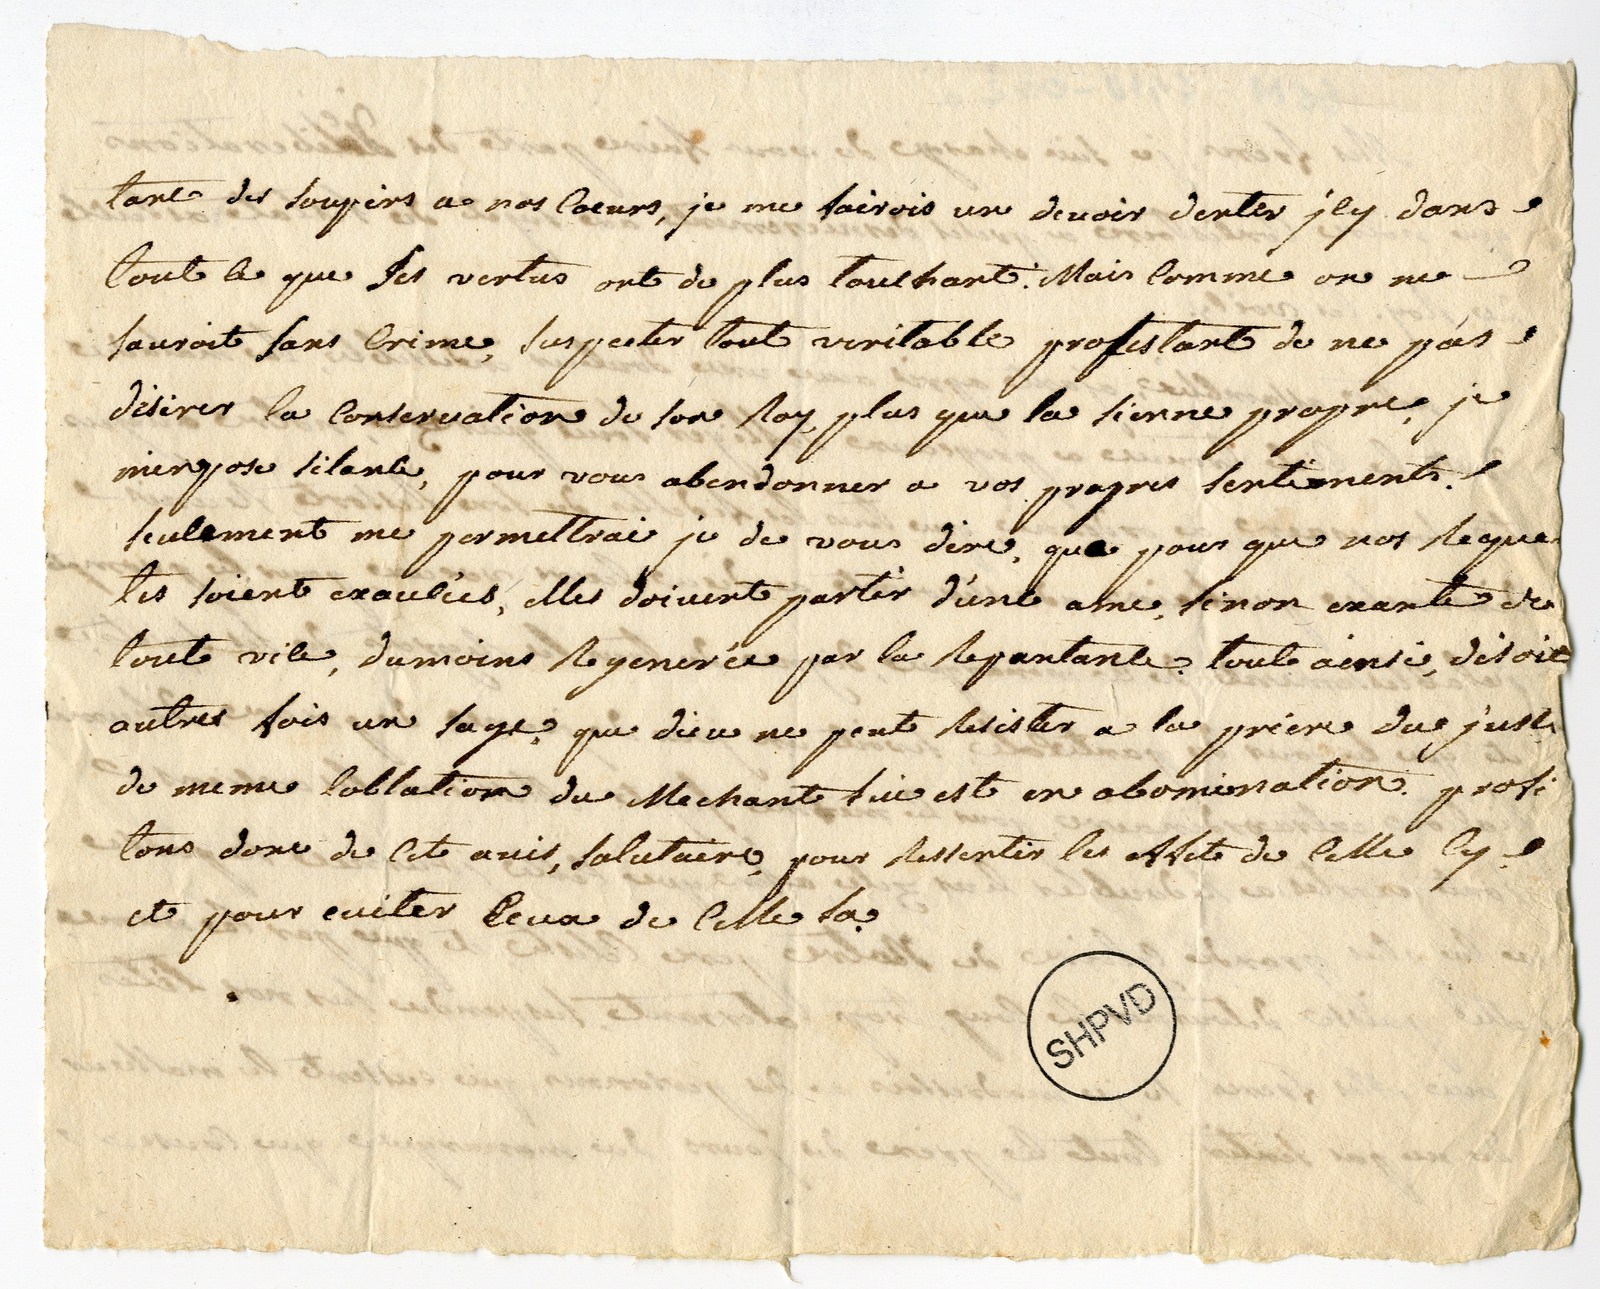 tant des soupirs a nos Coeurs, je me fairois un devoir denter j'cy dans
tout ce que ses vertus ont de plus touchant. Mais Comme on ne
sauroit sans Crime, suspecter tout veritable protestant de ne pas
désirer la Conservation de son Roy plus que la sienne propre, je
m'inpose silance, pour vous abendonner a vos propres sentiments.
seulement me permettrai je de vous dire, que pour que nos Reque
tes soient exaucées, elles doivent partir d'une ame, sinon exante de
tout vice, dumoins Regenerée par la Repantance. tout ainsi, disoit
autres fois un sage, que dieu ne peut Resister a la priere du juste
de meme l'oblation du Mechant lui est en abomination. profi
tons donc de Cet avis, salutaire, pour Ressentir les effets de Celle Cy
et pour eviter Ceux de Celle la.
SHPVD